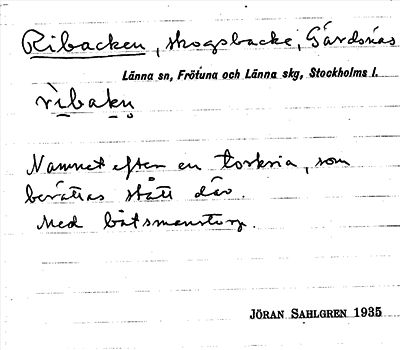 Ribacken, skogsbacke, Gärdsnäs
Länna sn, Frötuna och Länna skg, Stockholms l.
rìbakən
Namnet efter en torkria, som
berättas stått där.
Med båtsmanstorp.
JÖRAN SAHLGREN 1935